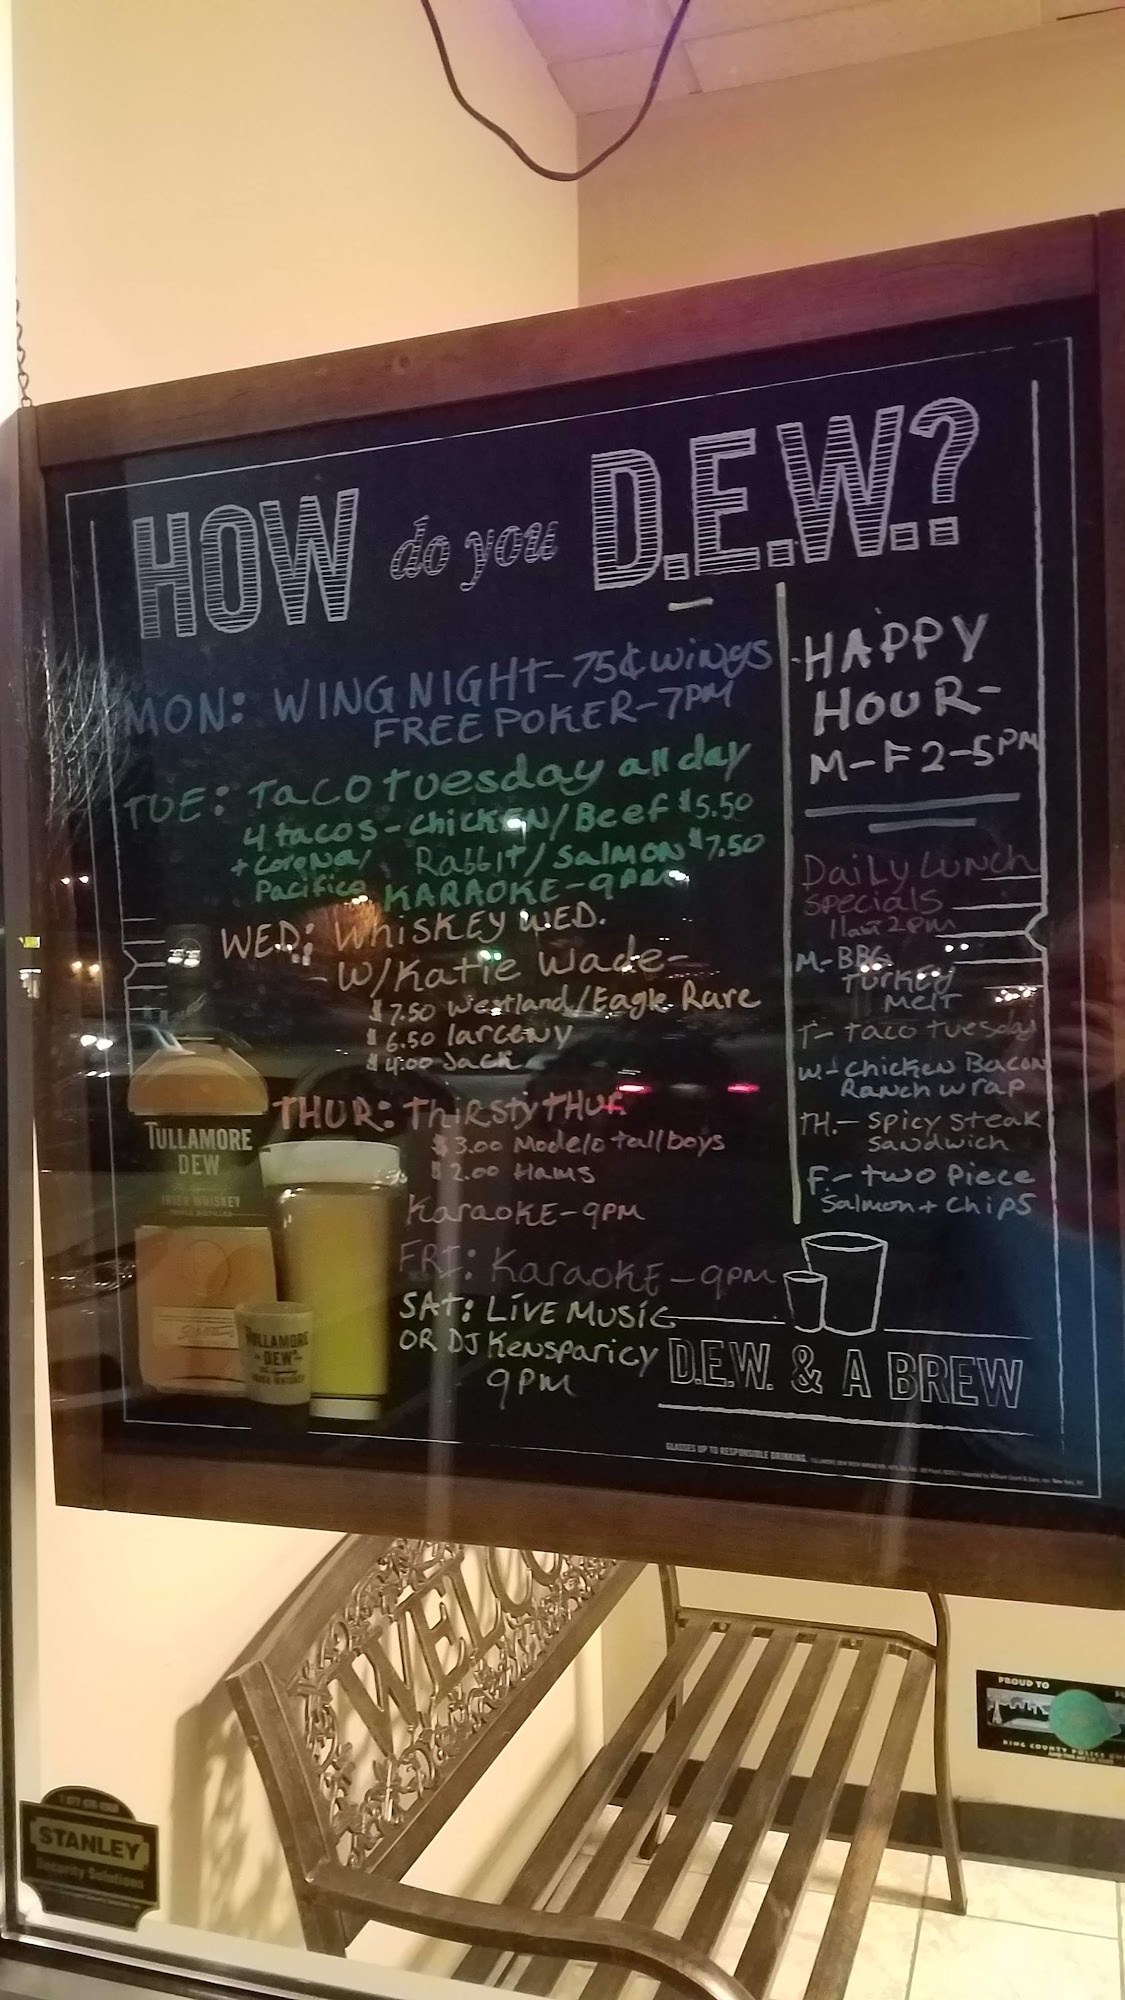 HOW do you D.E.W.?
MON: WING NIGHT - 75¢ wings
FREE POKER - 7PM
TUE: Taco tuesday all day
4 tacos - chicken/Beef $5.50
+ corona/ Rabbit/salmon $7.50
Pacifico KARAOKE - 9PM
WED: Whiskey WED.
- w/Katie Wade -
$7.50 Westland/Eagle Rare
$6.50 larceny
$4.00 Jack
THUR: Thirsty THUR
$3.00 Modelo tallboys
$2.00 Hams
Karaoke - 9PM
FRI: Karaoke - 9PM
SAT: LIVE MUSIC
OR DJ Kensparicy
9PM
HAPPY
HOUR -
M-F 2-5PM
Daily LUNCH
specials
11am 2pm
M.- BBQ
TURKEY
MELT
T- taco tuesday
W.- chicken Bacon
Ranch wrap
TH.- spicy steak
sandwich
F.- two Piece
Salmon + Chips
D.E.W. & A BREW
GLASSES UP TO RESPONSIBLE DRINKING.
TULLAMORE
DEW
IRISH WHISKEY
TULLAMORE
DEW
IRISH WHISKEY
WELCO
PROUD TO
KING COUNTY POLICE
STANLEY
Security Solutions